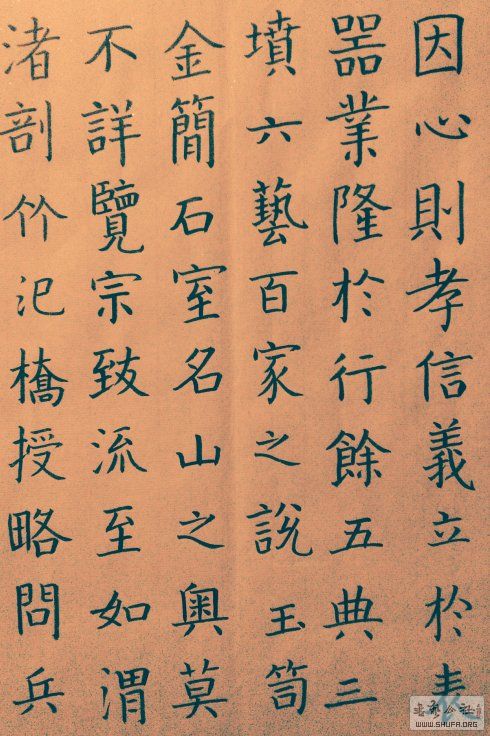 因心則孝信義立於表
噐業隆於行餘五典三
墳六藝百家之說玉笥
金簡石室名山之奧莫
不詳覽宗致流至如渭
渚剖竹汜橋授略問兵
WWW.SHUFA.ORG